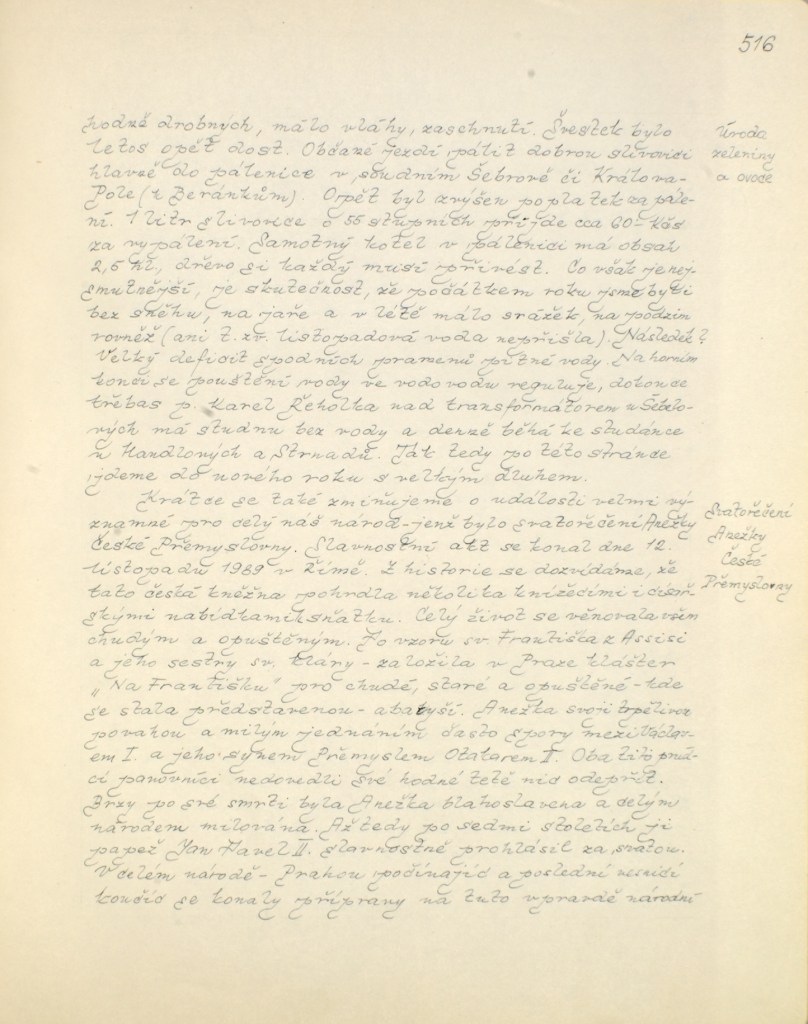 516
hodně drobných, málo vláhy, zaschnutí. Švestek bylo
letos opět dost. Občané jezdí pálit dobrou slivovici
hlavně do pálenice v sousedním Šebrově či Králova-
Pole (k Beránkům). Opět byl zvýšen poplatek za pále-
ní. 1 litr slivovice o 55 stupních přijde cca 60- Kčs
za vypálení. Samotný kotel v pálenici má obsah
2,5 hl, dřevo si každý musí přivést. Co však je nej-
smutnější, je skutečnost, že počátkem roku jsme byli
bez sněhu, na jaře a v létě málo srážek, na podzim
rovněž (ani t. zv. listopadová voda nepřišla). Následek?
Velký deficit spodních pramenů pitné vody. Na horním
konci se pouštění vody ve vodovodu reguluje, dokonce
třebas p. Karel Řeholka nad transformátorem u Šeblo-
vých má studnu bez vody a denně běhá ke studánce
u Handlových a Strnadů. Tak tedy po této stránce
jdeme do nového roku s velkým dluhem.
Krátce se také zmiňujeme o události velmi vý-
znamné pro celý náš národ-jenž bylo svatořečení Anežky
České Přemyslovny. Slavnostní akt se konal dne 12.
listopadu 1989 v Římě. Z historie se dozvídáme, že
tato česká kněžna pohrdla několika knížecími i císař-
skými nabídkami k sňatku. Celý život se věnovala všem
chudým a opuštěným. Po vzoru sv. Františka z Assisi
a jeho sestry sv. Kláry - založila v Praze klášter
"Na Františku" pro chudé, staré a opuštěné - kde
se stala představenou - abatyší. Anežka svojí trpělivou
povahou a milým jednáním často spory mezi Václav-
em I. a jeho synem Přemyslem Otakarem II. Oba tito
panovníci nedovedli své hodné tetě nic odepřít.
Brzy po své smrti byla Anežka blahoslavena a celým
národem milována. Až tedy po sedmi stoletích ji
papež Jan Pavel II. slavnostně prohlásil za svatou.
V celém národě - Prahou počínajíc a poslední vesnicí
končíc se konaly přípravy na tuto vpravdě národní
Úroda
zeleniny
a ovoce
Svatořečení
Anežky
České
Přemyslovny